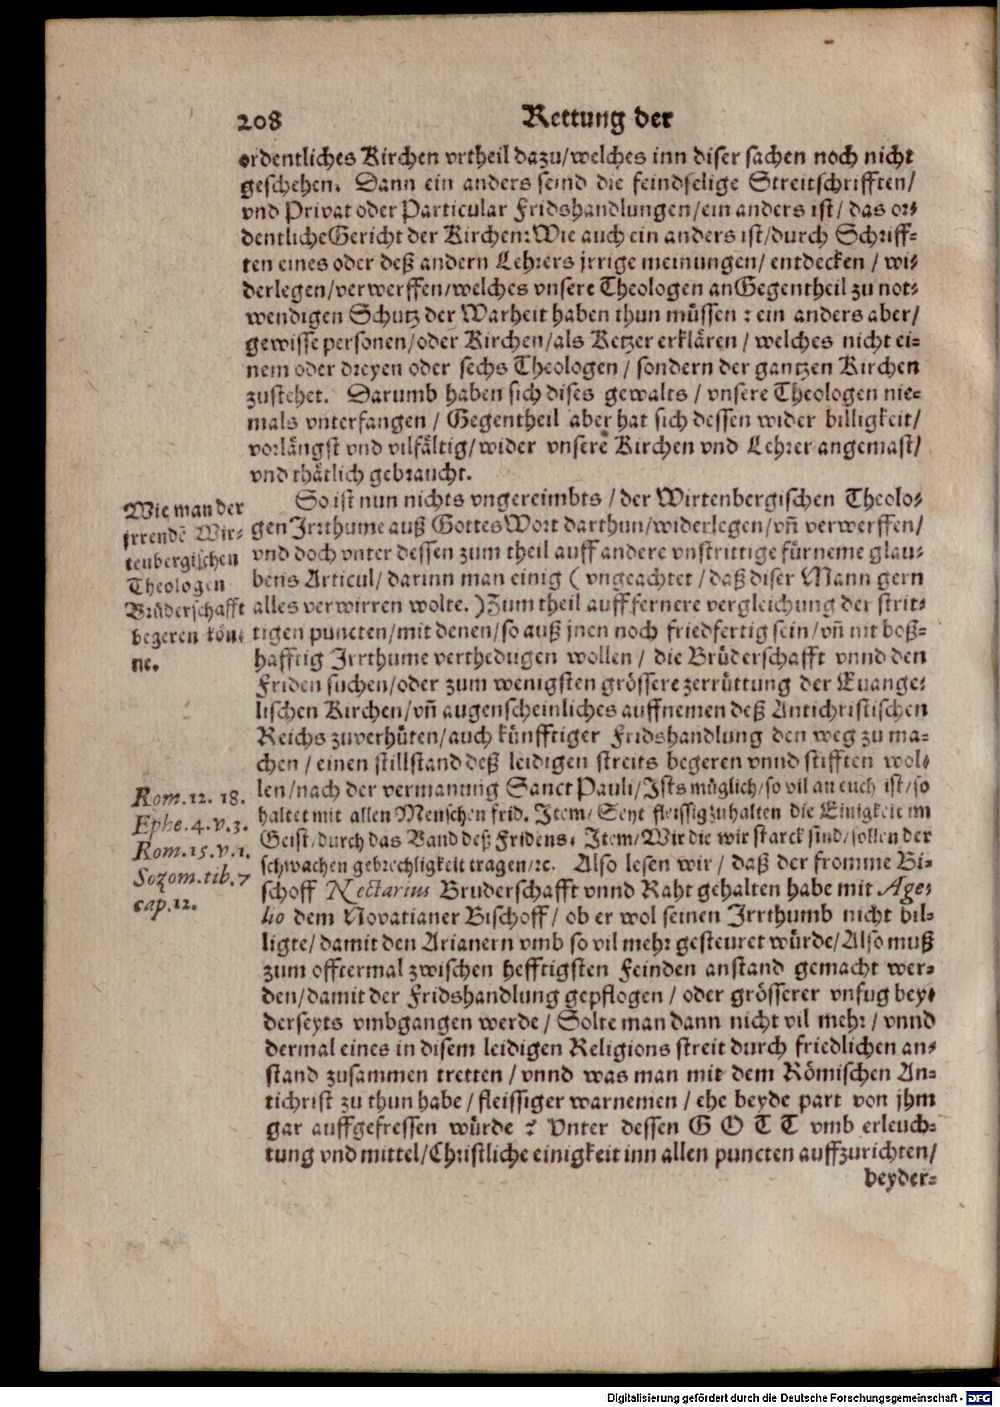 208 Rettung der
ordentliches Kirchen vrtheil dazu/welches inn diser sachen noch nicht
geschehen. Dann ein anders seind die feindselige Streitschrifften/
vnd Privat oder Particular Fridshandlungen/ein anders ist/das or-
dentliche Gericht der Kirchen: Wie auch ein anders ist/durch Schriff-
ten eines oder deß andern Lehrers jrrige meinungen/entdecken/wi-
derlegen/verwerffen/welches vnsere Theologen an Gegentheil zu not-
wendigen Schutz der Warheit haben thun müssen: ein anders aber/
gewisse personen/oder Kirchen/als Ketzer erklären/welches nicht ei-
nem oder dreyen oder sechs Theologen/sondern der gantzen Kirchen
zustehet. Darumb haben sich dises gewalts/vnsere Theologen nie-
mals vnterfangen/Gegentheil aber hat sich dessen wider billigkeit/
vorlängst vnd vilfältig/wider vnsere Kirchen vnd Lehrer angemast/
vnd thätlich gebraucht.
Wie man der
jrrendẽ Wir-
tenbergischen
Theologen
Brüderschafft
begeren kön-
ne.
So ist nun nichts vngereimbts/der Wirtenbergischen Theolo-
gen Jrrthume auß Gottes Wort darthun/widerlegen/vñ verwerffen/
vnd doch vnter dessen zum theil auff andere vnstrittige fürneme glau-
bens Articul/darinn man einig (vngeachtet/daß diser Mann gern
alles verwirren wolte.) Zum theil auff fernere vergleichung der strit-
tigen puncten/mit denen/so auß jnen noch friedfertig sein/vñ nit boß-
hafftig Jrrthume verthedugen wollen/die Brüderschafft vnnd den
Friden suchen/oder zum wenigsten grössere zerrüttung der Euange-
lischen Kirchen/vñ augenscheinliches auffnemen deß Antichristischen
Reichs zuverhüten/auch künfftiger Fridshandlung den weg zu ma-
chen/einen stillstand deß leidigen streits begeren vnnd stifften wol-
len/nach der vermanung Sanct Pauli/Ists müglich/so vil an euch ist/so
haltet mit allen Menschen frid. Item/Seyt fleissig zuhalten die Einigkeit im
Geist/durch das Band deß Fridens. Item/Wir die wir starck sind/sollen der
schwachen gebrechligkeit tragen/ꝛc. Also lesen wir/daß der fromme Bi-
schoff Nectarius Bruderschafft vnnd Raht gehalten habe mit Age-
lio dem Novatianer Bischoff/ob er wol seinen Jrrthumb nicht bil-
ligte/damit den Arianern vmb so vil mehr gesteuret würde/Also muß
zum offtermal zwischen hefftigsten Feinden anstand gemacht wer-
den/damit der Fridshandlung gepflogen/oder grösserer vnfug bey-
derseyts vmbgangen werde/Solte man dann nicht vil mehr/vnnd
dermal eines in disem leidigen Religions streit durch friedlichen an-
stand zusammen tretten/vnnd was man mit dem Römischen An-
tichrist zu thun habe/fleissiger warnemen/ehe beyde part von jhm
gar auffgefressen würde? Vnter dessen GOTT vmb erleuch-
tung vnd mittel/Christliche einigkeit inn allen puncten auffzurichten/
beyder-
Rom. 12. 18.
Ephe. 4. v. 3.
Rom. 15. v. 1.
Sozom. tib. 7
cap. 12.
Digitalisierung gefördert durch die Deutsche Forschungsgemeinschaft - DFG